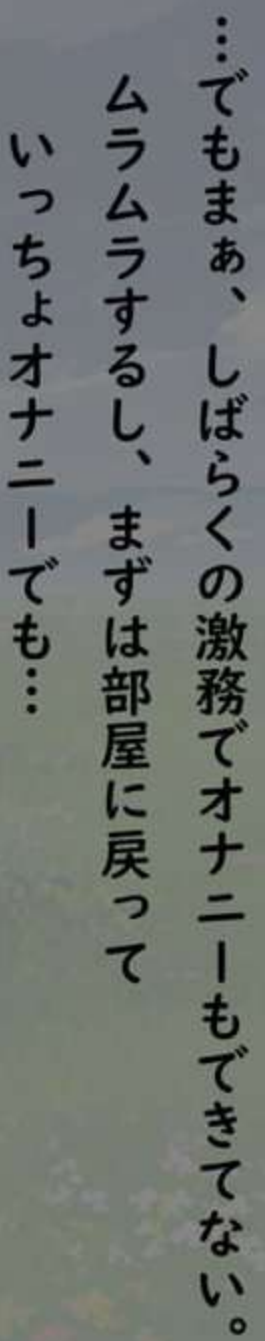 …でもまぁ、しばらくの激務でオナニーもできてない。
ムラムラするし、まずは部屋に戻って
いっちょオナニーでも…